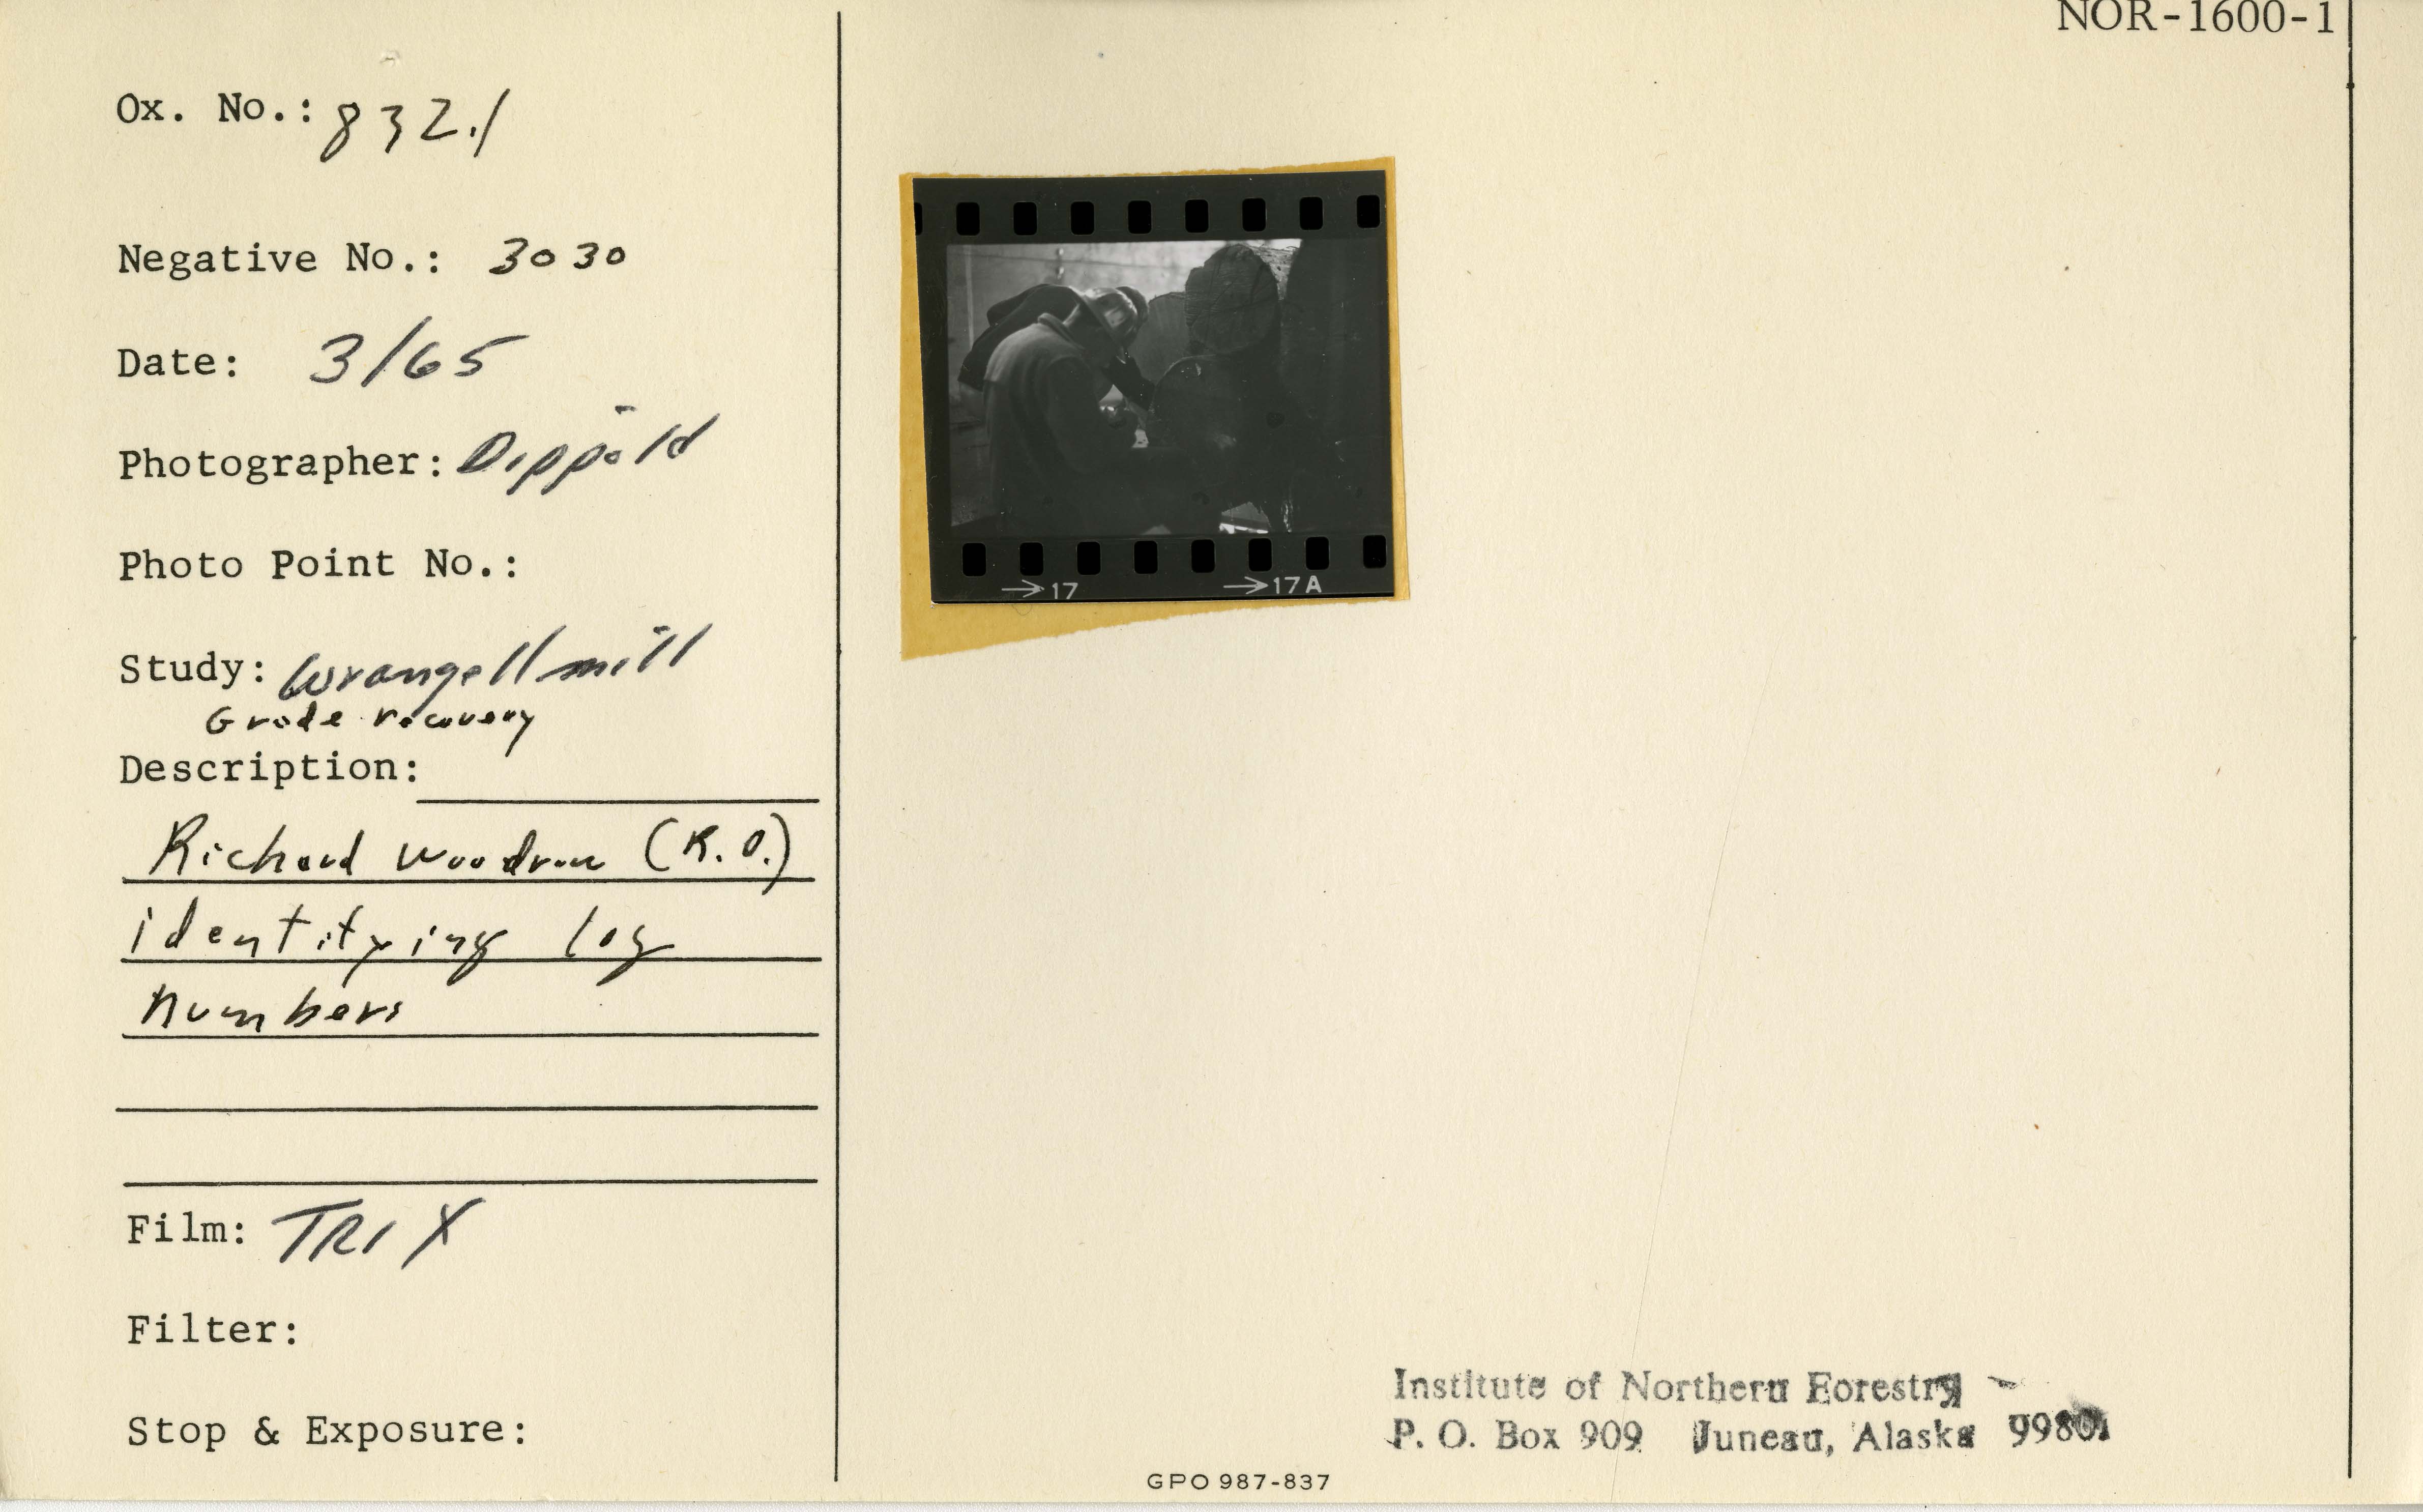 NOR-1600-1
Ox. No.: 832.1
Negative No.: 3030
Date: 3/65
Photographer: Dippold
Photo Point No.:
Study: Wrangell mill
Grade recovery
Description:
Richard Woodrow (R.O.)
identifying log
numbers
Film: TRI X
Filter:
Stop & Exposure:
→17 →17A
Institute of Northern Forestry
P. O. Box 909 Juneau, Alaska 99801
GPO 987-837